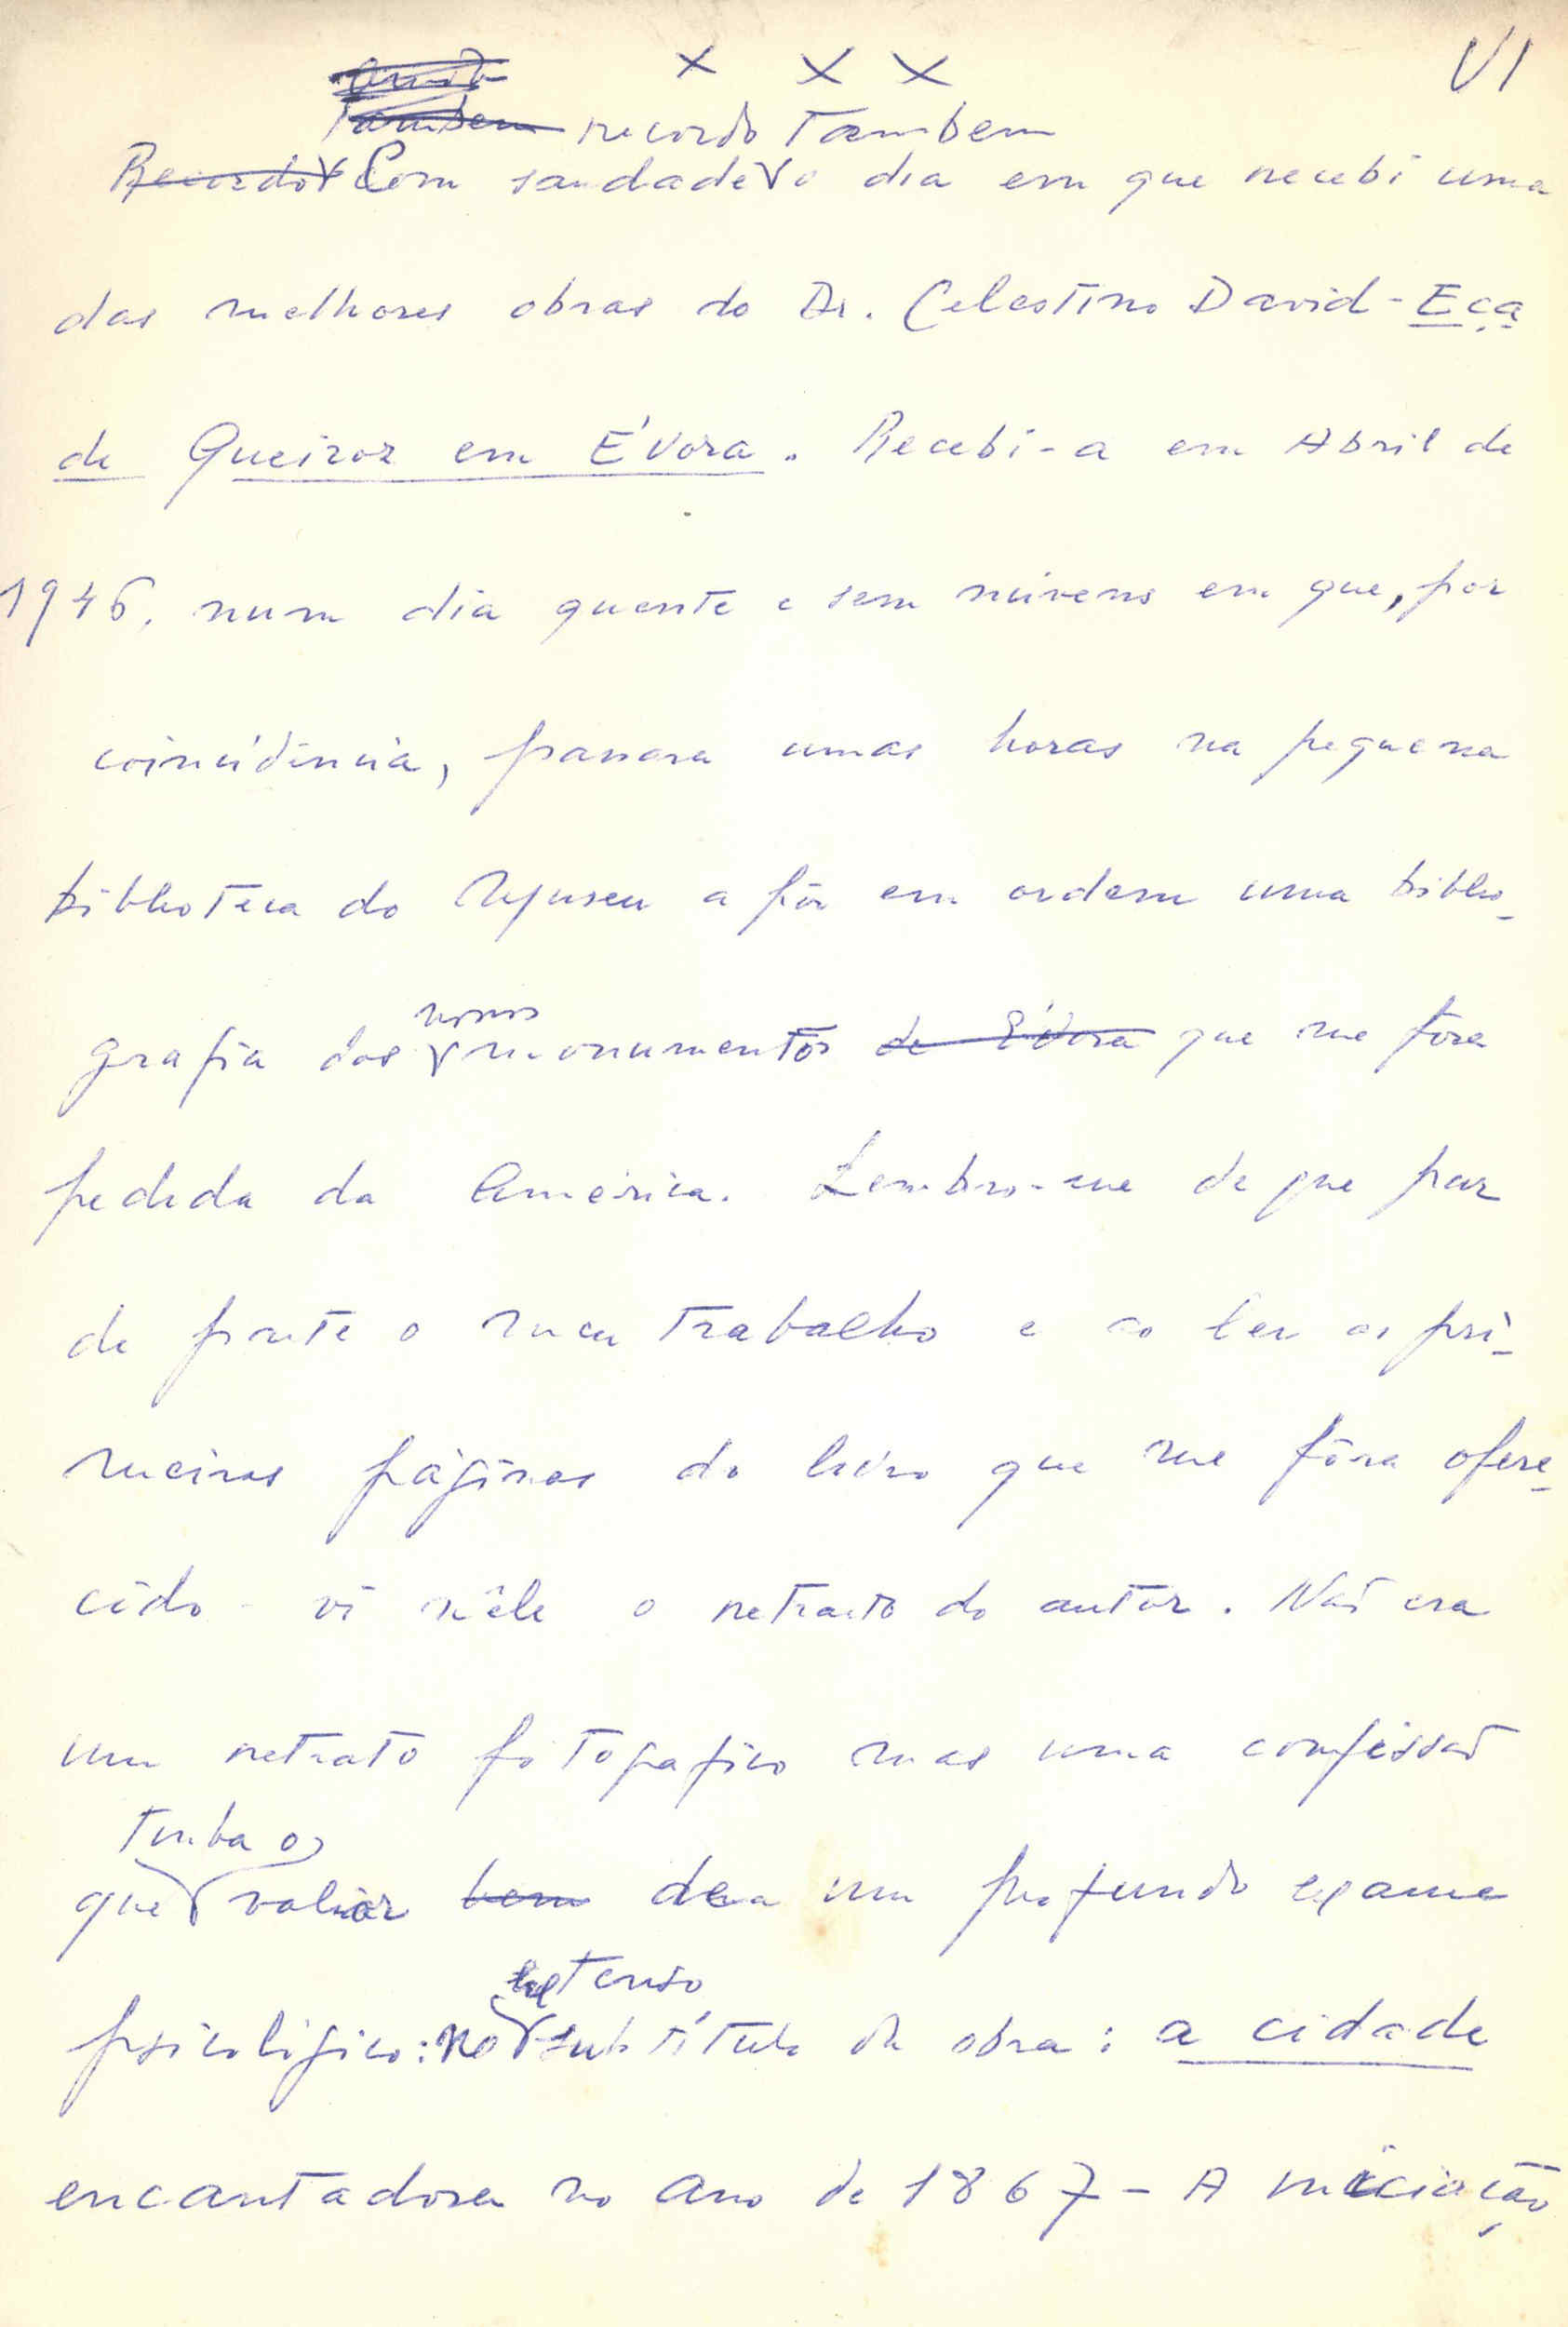 x x x
VI
Tambem recordo Tambem
Recordo Com saudade o dia em que recebi uma
das melhores obras do Dr. Celestino David - Eça
de Queiroz em Évora. Recebi-a em Abril de
1946, num dia quente e sem núvens em que, por
coincidência, passara umas horas na pequena
biblioteca do Museu a pôr em ordem uma biblio-
nossos
grafia dos monumentos de Évora que me fôra
pedida da América. Lembro-me de que puz
de parte o meu trabalho e ao ler as pri-
meiras páginas do livro que me fôra ofere-
cido - vi nêle o retrato do autor. Não era
um retrato fotografico mas uma confissão
Tinha o
que valor bem de um profundo exame
extenso
psicológico: no subtítulo da obra: a cidade
encantadora no ano de 1867 - A iniciação